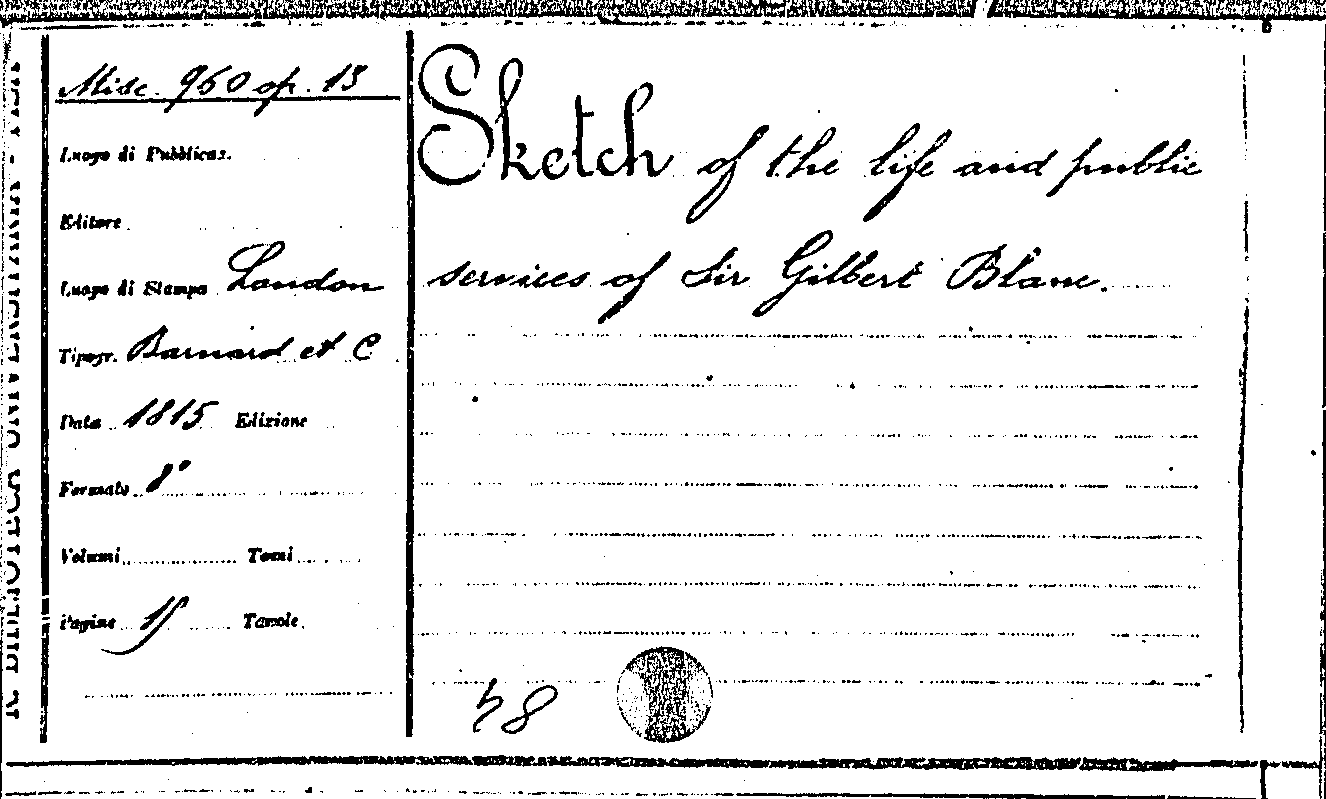 Misc. 960 op. 13
Luogo di Pubblicaz.
Editore
Luogo di Stampa London
Tipogr. Barnard et C
Data 1815 Edizione
Formato 8°
Volumi Tomi
Pagine 15 Tavole
Sketch of the life and public
services of Sir Gilbert Blane.
R. BIBLIOTECA UNIVERSITARIA